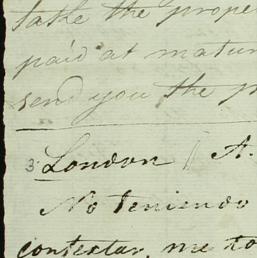 take the prope
paid at matur
send you the p
3. London // A.
No teniendo
contextar, me to